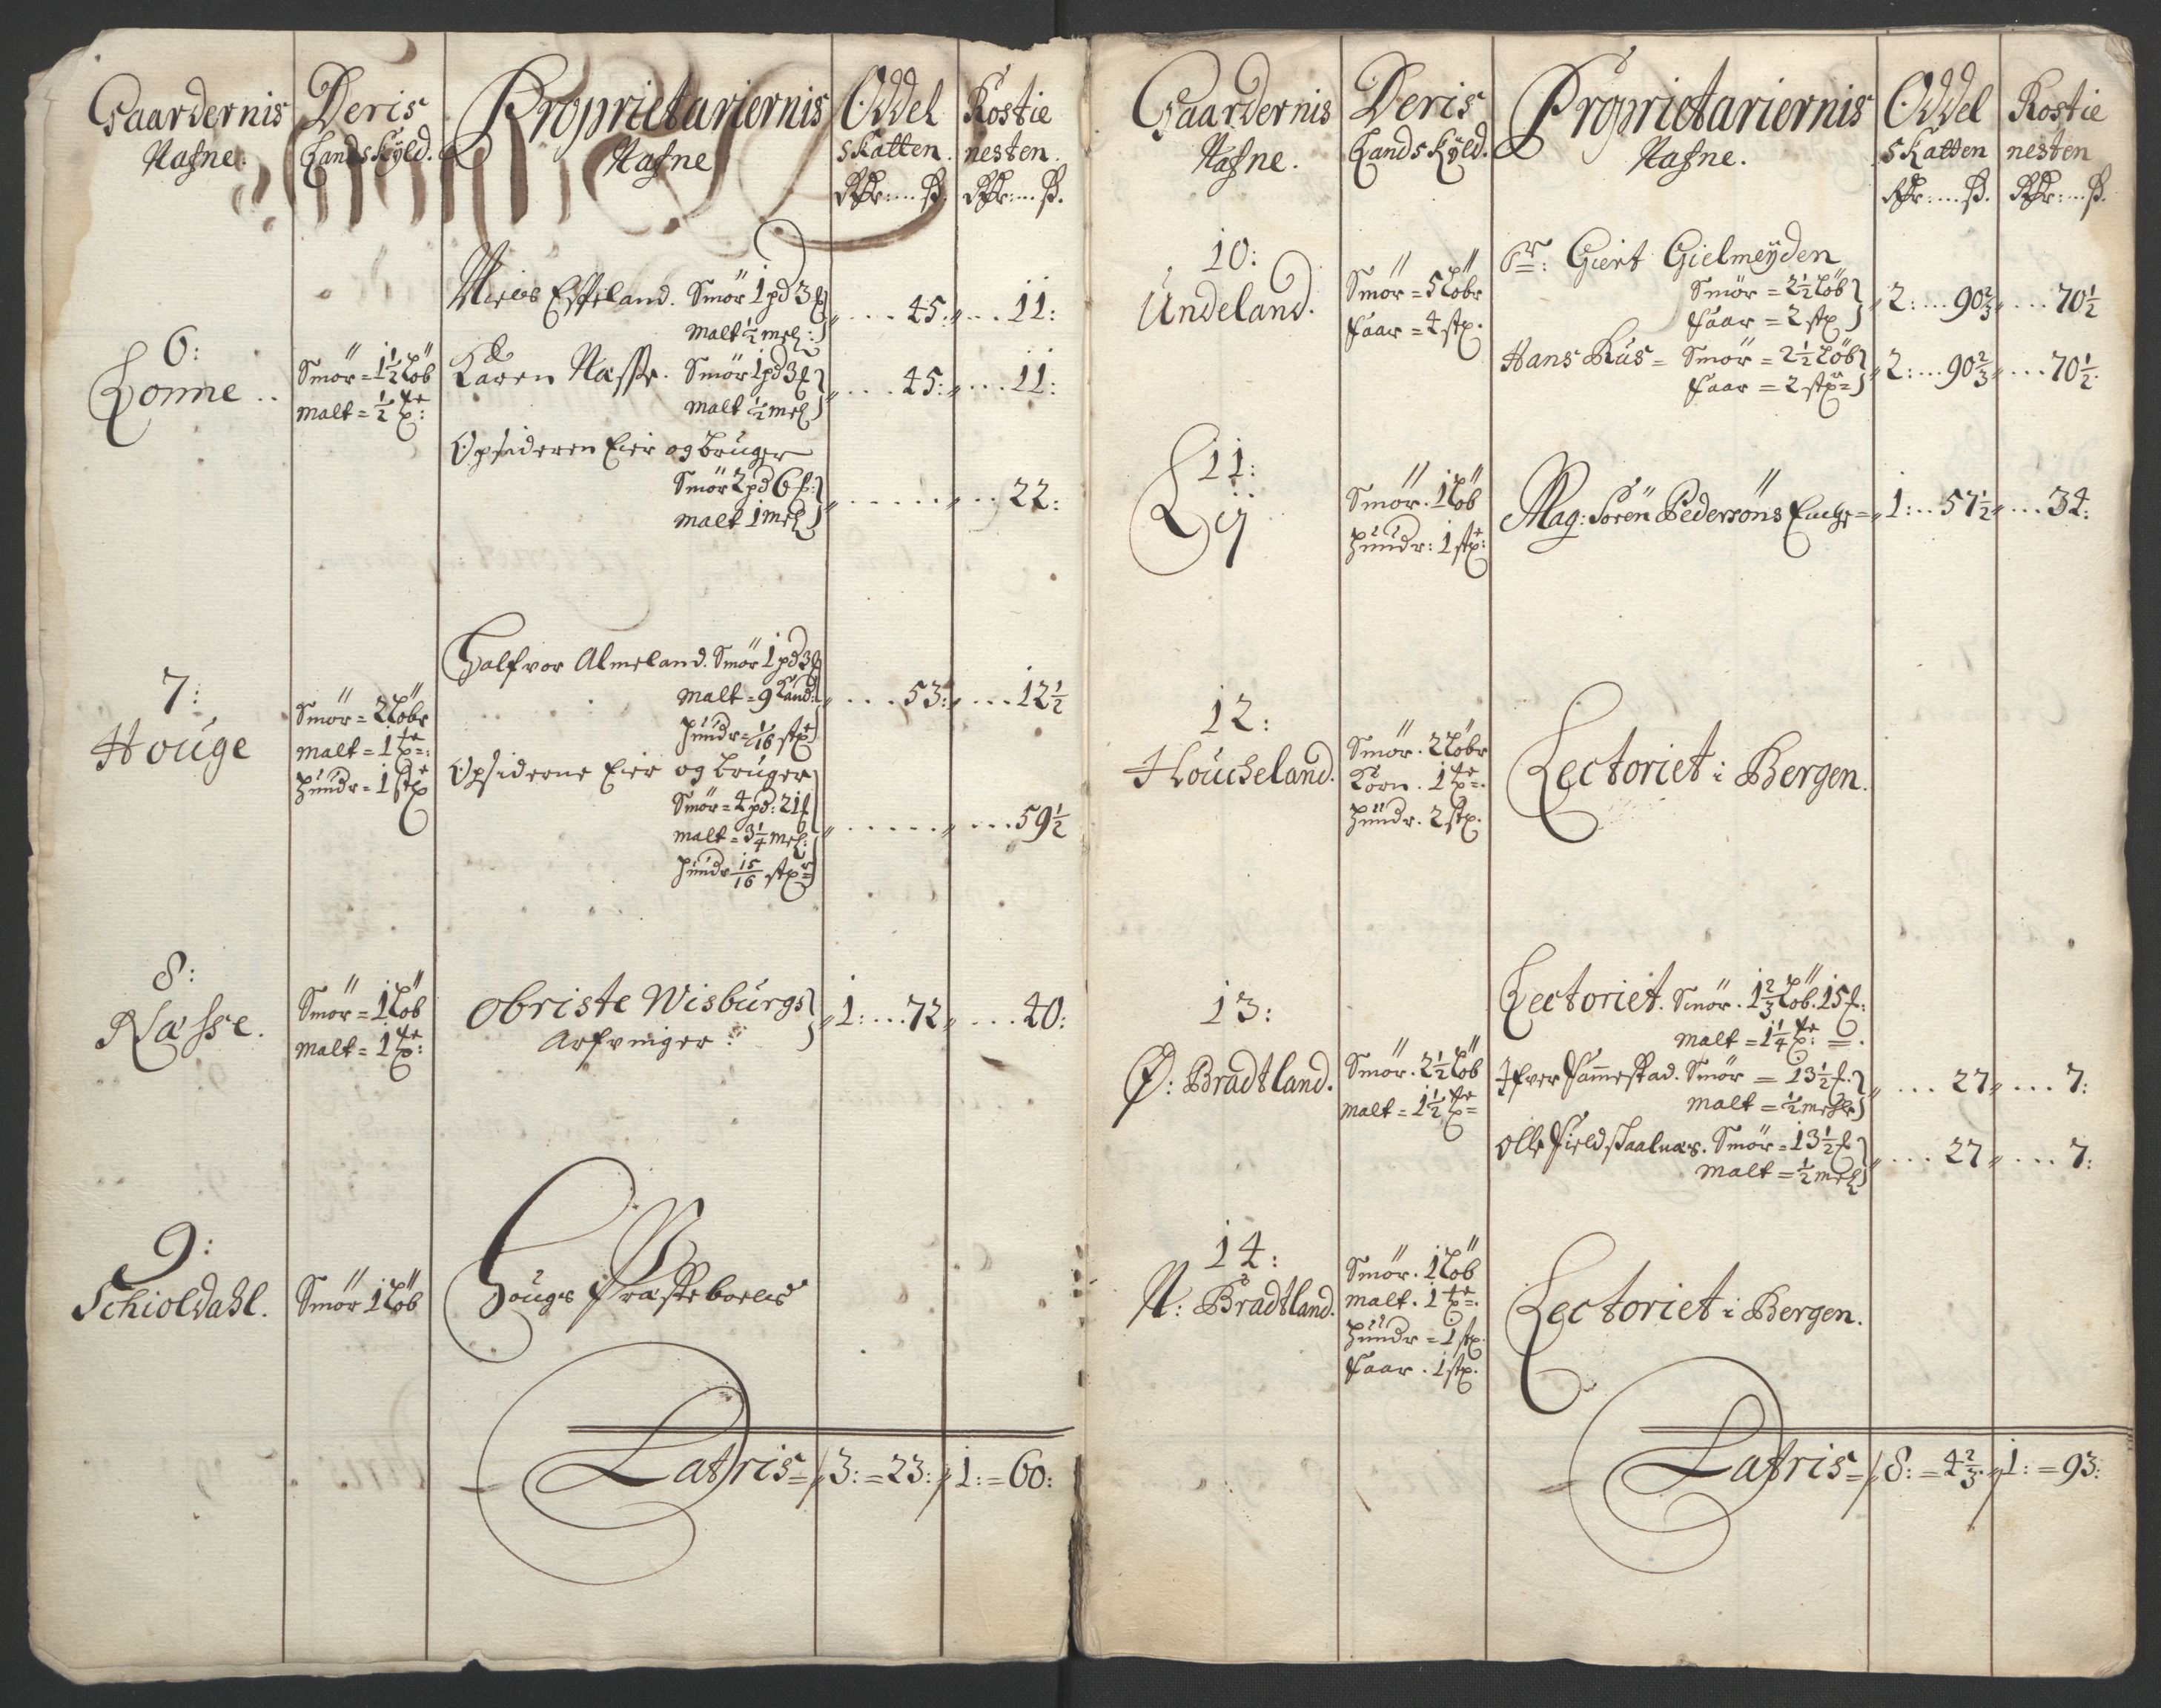 Gaardernis Nafne.
Deris Landskÿld.
Proprietariernis Nafne
Oddel skatten. Rdr: ... ß.
Rostie nesten. Rdr: ... ß.
Niels Espeland. Smör 1 pd 3 ℔
Malt ½ mel: " .... 45: " ... 11:
6:
Lonne ..
Smör = 1½ löb
malt = ½ tø:
Karen Næsse. Smör 1 pd 3 ℔
malt ½ mel " .... 45: " ... 11:
Opsideren Eier og bruger
Smör 2 pd 6 ℔:
malt 1 mel " ...... " ... 22:
7:
Houge
Smör = 2 löbr
malt = 1 tø:
Huudr = 1 stø
Halfvor Almeland. Smör 1 pd 3 ℔
malt = 9 Kand:
Huudr = 1/16 stø " .... 53: " ... 12½
Opsiderne Eier og bruger
Smör = 4 pd: 21 ℔
malt = 3¼ mel:
Huudr 15/16 stør " ...... " ... 59½
8:
Næsse.
Smör = 1 löb
malt = 1 tø:
Obriste Wisburgs
Arfvinger " 1: ... 72 " .... 40:
9:
Schioldahl.
Smör 1 löb
Houges Præsteboeles
Latris = " 3: = 23: " 1: = 60:
Gaardernis Nafne.
Deris Landskÿld.
Proprietariernis Nafne.
Oddel skatten Rdr: ... ß.
Rostie nesten Rdr: ... ß.
10:
Undeland.
Smör = 5 löbr
Faar = 4 stø.
Sr: Giert Gielmeÿden
Smör = 2½ löb
Faar = 2 stø " 2: ... 90⅔ " .... 70½
Hans Rus = Smör = 2½ löb
Faar = 2 stør = " 2: ... 90⅔ " ... 70½
11:
Lij
Smör. 1 löb
Huudr: 1 stø:
Mag: Sören Pedersöns Encke = " 1: .. 57½ " ... 34:
12:
Houcheland.
Smör. 2 löbr
Korn. 1 tø =.
Huudr. 2 stø.
Lectoriet i Bergen.
13:
Ø: Bradtland.
Smör. 2½ löb
malt = 1½ tø =
Lectoriet. Smör. 1⅔ löb. 15 ℔:
malt = 1¼ tø: = .
Ifver Sammestad. Smör = 13½ ℔:
malt = ½ mehle " ... 27 " ... 7:
Olle Fieldskaalnæs. Smör = 13½ ℔
malt = ½ mel " ... 27 " ... 7:
14:
N: Bradtland.
Smör. 1 löb
malt. 1 tø =.
Huudr = 1 stø.
Faar. 1 stø.
Lectoriet i Bergen.
Latris = " 8: = 4⅔ " 1: = 93: